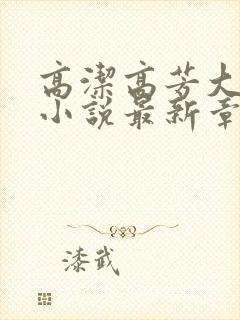 高潔高芳大
小說最新章
漆武